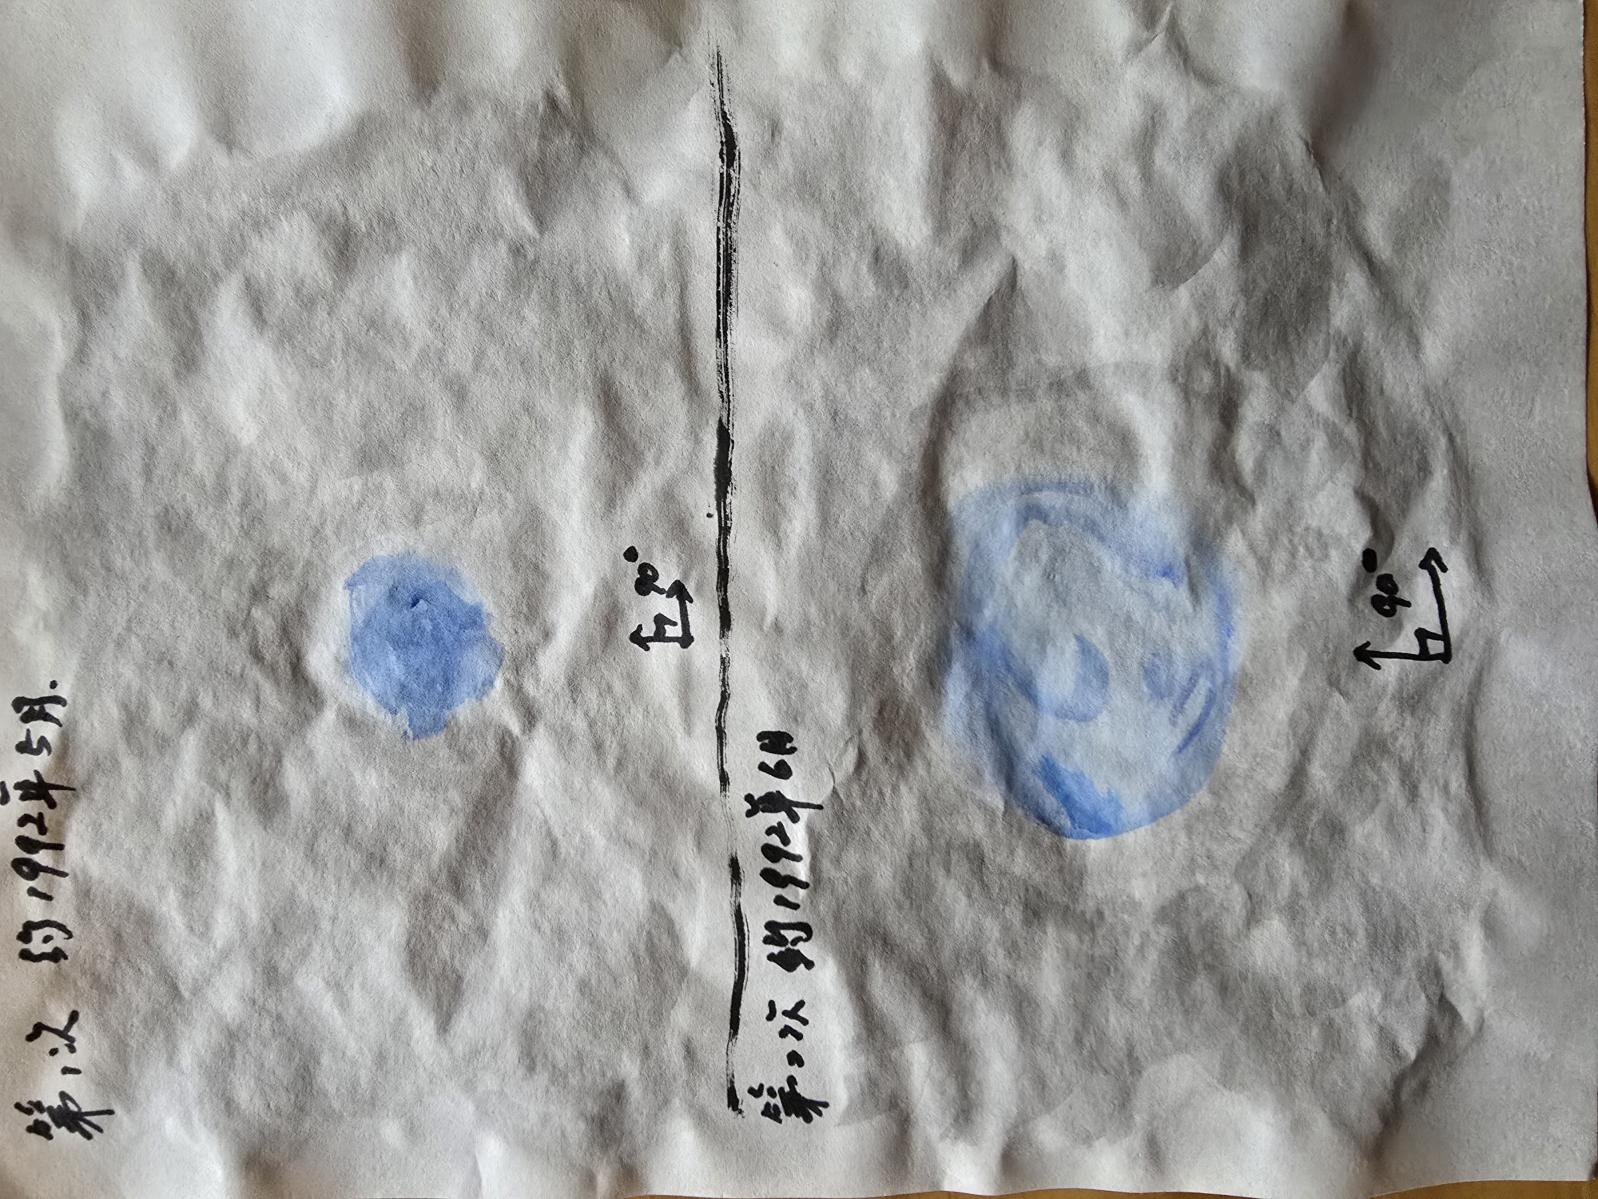 第1次 约1992年5月.
90°
第2次 约1992年6月
90°